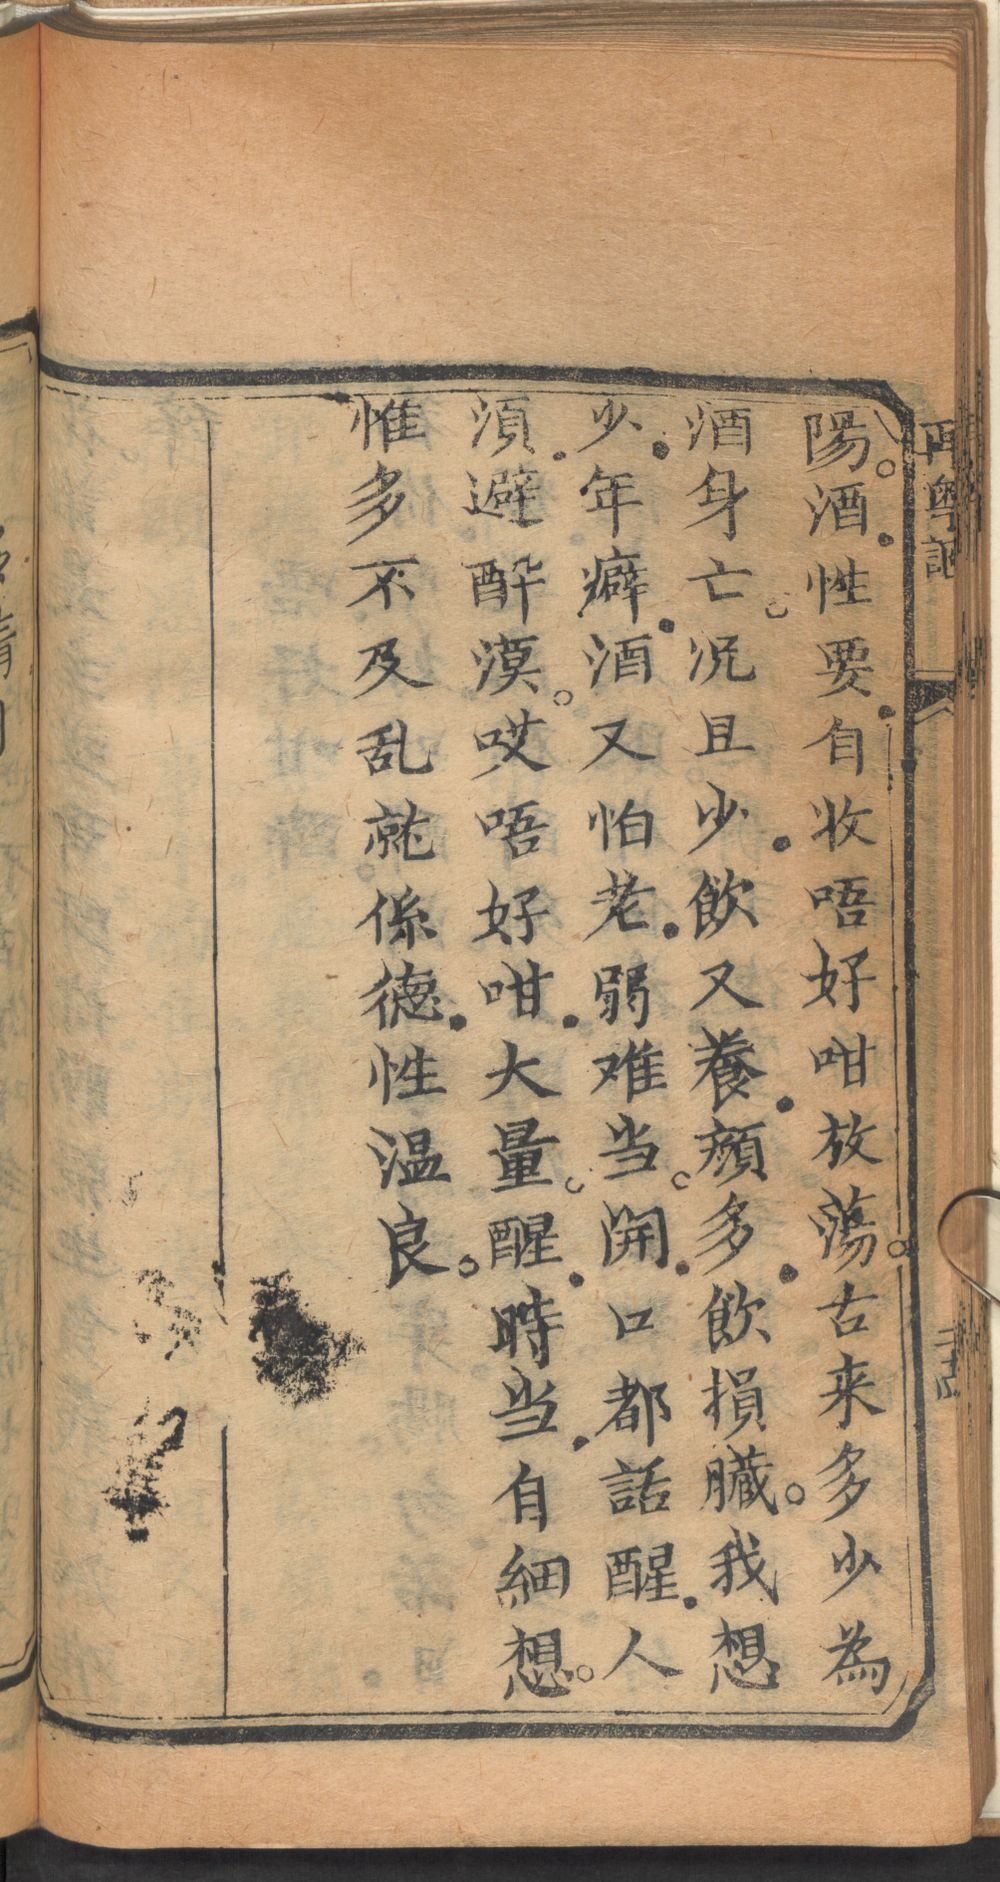 陽。酒性要自收唔好咁放蕩。古来多少為
酒身亡。況且少飲又養顔多飲損臓。我想
少年癖酒又怕老弱难当。開口都話醒人
須避酔漠。哎唔好咁大量。醒時当自細想。
惟多不及乱就係德性温良。
再粤謳